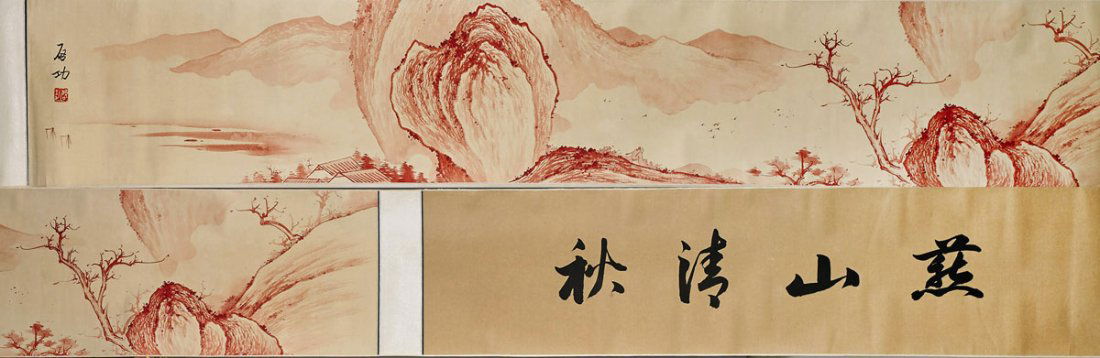 启功
燕山清秋